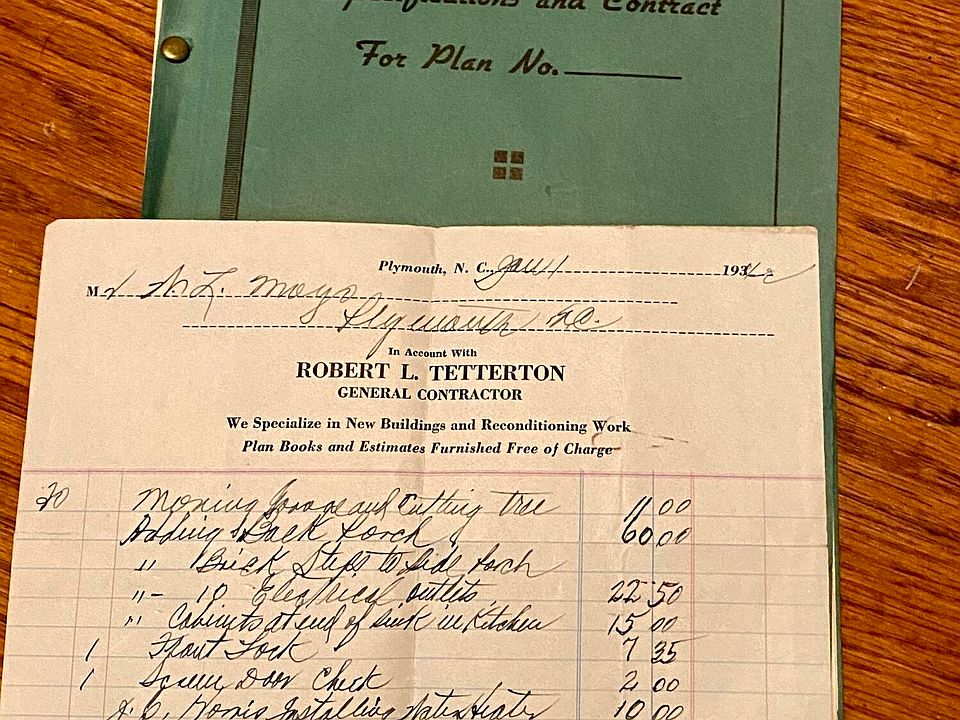 and Contract
For Plan No.
Plymouth, N. C., Jan 1 1942
M r W. L. Mayo
Plymouth N.C.
In Account With
ROBERT L. TETTERTON
GENERAL CONTRACTOR
We Specialize in New Buildings and Reconditioning Work
Plan Books and Estimates Furnished Free of Charge
20 Moving Garage and Cutting tree 11 00
Adding Back Porch 60 00
" Brick Steps to Side Porch
"- 10 Electrical outlets 22 50
" Cabinets at end of sink in Kitchen 15 00
1 Front Lock 7 35
1 Screen Door Check 2 00
Installing Water Heater 10 00